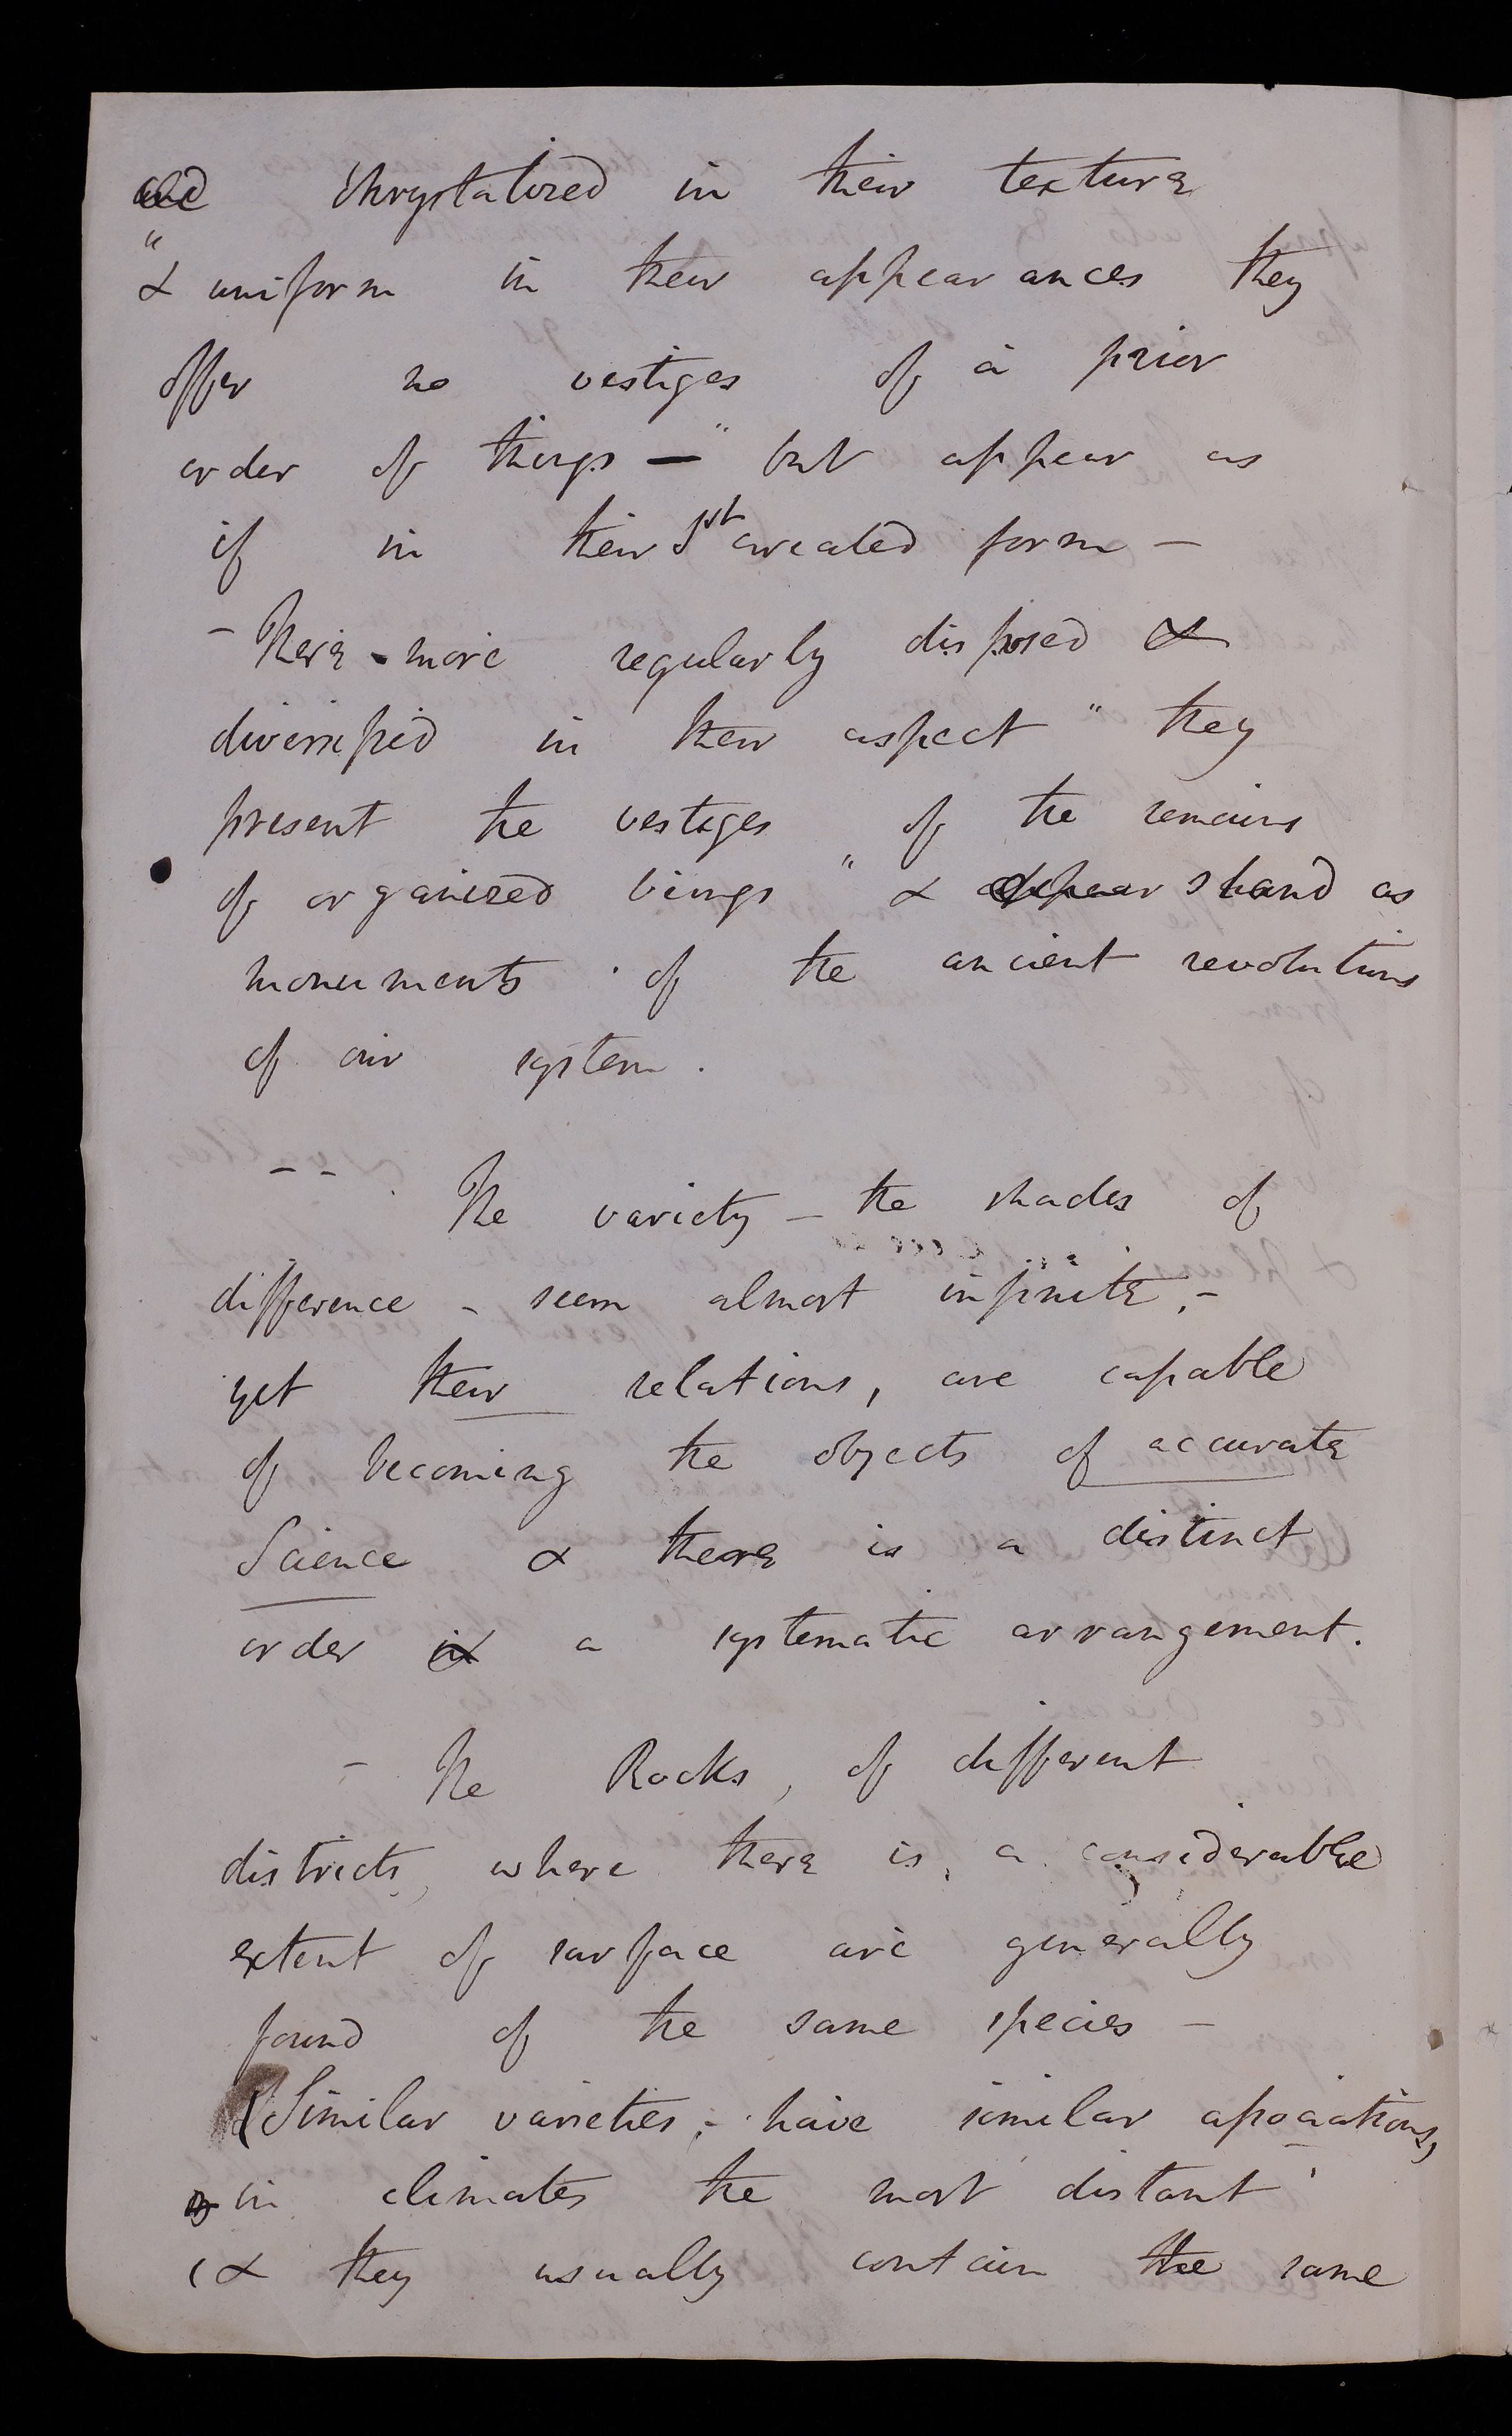 Chrystalized in their texture
" & uniform in their appearances they
offer no vestiges of a prior
order of things — " but appear as
if in their 1st created form –
– There - more regularly disposed &
diversified in their aspect " they
present the vestiges of the remains
of organized beings " & appear stand as
monuments of the ancient revolutions
of our system .
– – The variety – the shades of
difference – seem almost infinite, –
yet their relations, are capable
of becoming the objects of accurate
Science & there is a distinct
order & a systematic arrangement.
– The Rocks, of different
districts, where there is, a considerable
extent of surface are generally
found of the same species –
(Similar varieties, - have similar associations,
in climates the most distant
(& they usually contain the same